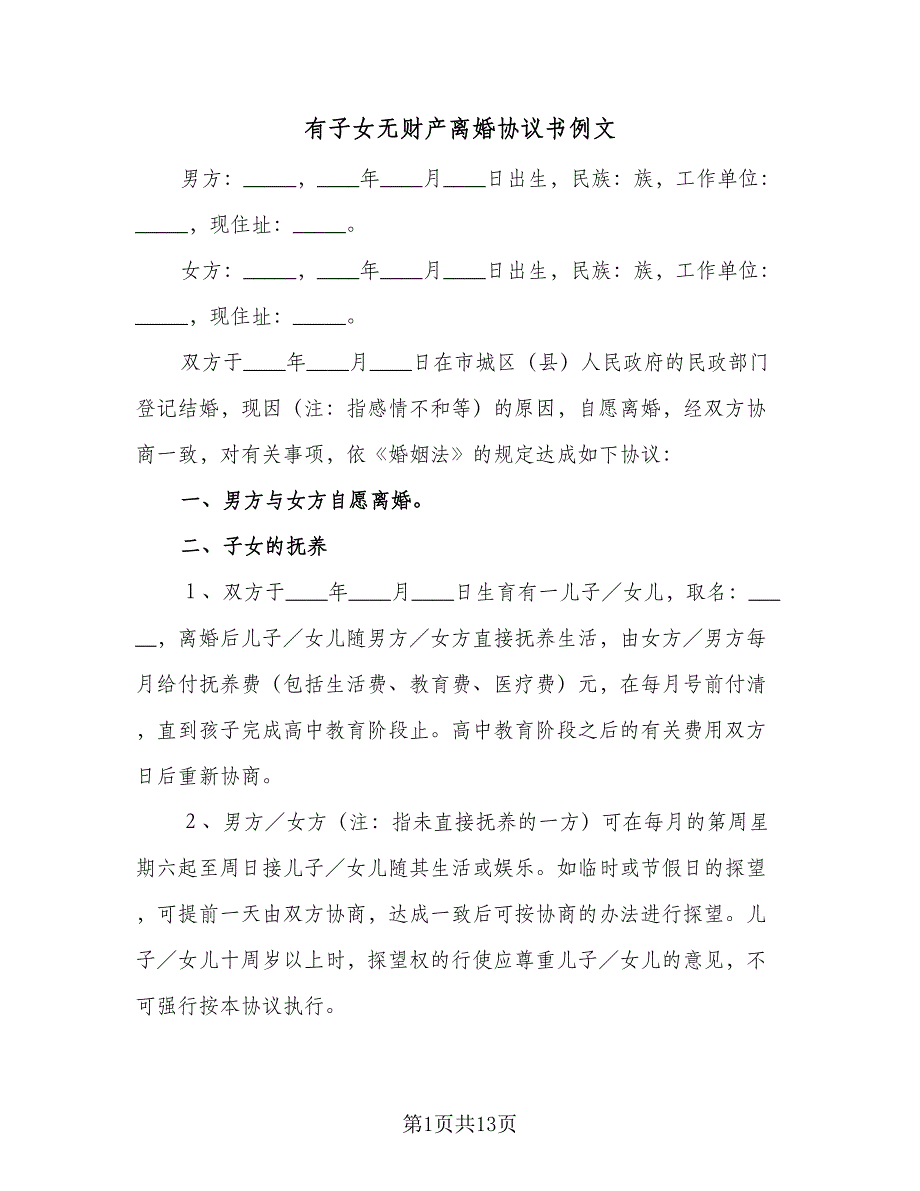 有子女无财产离婚协议书例文
男方：_____，____年____月____日出生，民族：族，工作单位：
_____，现住址：_____。
女方：_____，____年____月____日出生，民族：族，工作单位：
_____，现住址：_____。
双方于____年____月____日在市城区（县）人民政府的民政部门
登记结婚，现因（注：指感情不和等）的原因，自愿离婚，经双方协
商一致，对有关事项，依《婚姻法》的规定达成如下协议：
一、男方与女方自愿离婚。
二、子女的抚养
１、双方于____年____月____日生育有一儿子／女儿，取名：___
__，离婚后儿子／女儿随男方／女方直接抚养生活，由女方／男方每
月给付抚养费（包括生活费、教育费、医疗费）元，在每月号前付清
，直到孩子完成高中教育阶段止。高中教育阶段之后的有关费用双方
日后重新协商。
２、男方／女方（注：指未直接抚养的一方）可在每月的第周星
期六起至周日接儿子／女儿随其生活或娱乐。如临时或节假日的探望
，可提前一天由双方协商，达成一致后可按协商的办法进行探望。儿
子／女儿十周岁以上时，探望权的行使应尊重儿子／女儿的意见，不
可强行按本协议执行。
第1页共13页